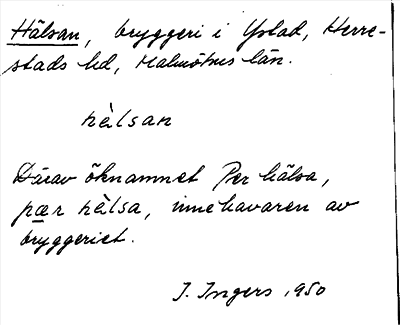 Hälsan, bryggeri i Ystad, Herre-
stads hd, Malmöhus län.
hèlsan
Därav öknamnet Per hälsa,
pær hèlsa, innehavaren av
bryggeriet.
I. Ingers 1950